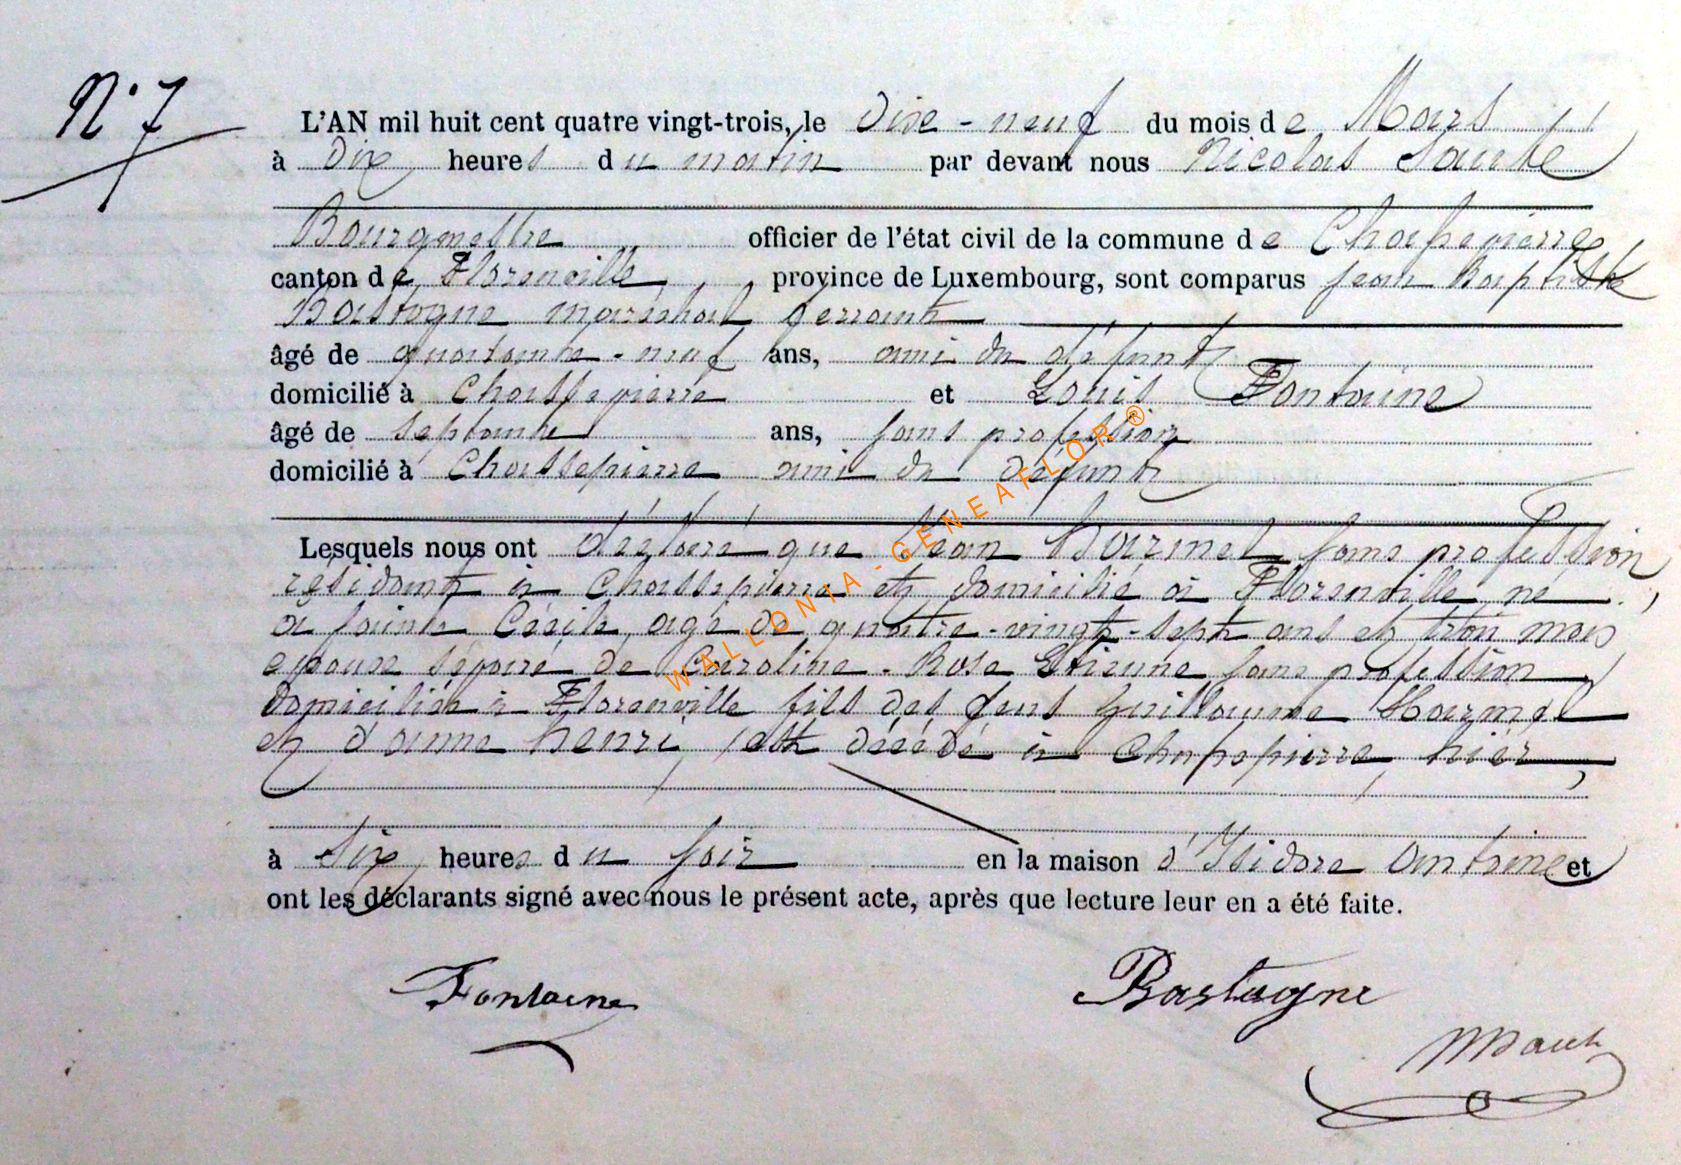 N° 7
L'AN mil huit cent quatre vingt-trois, le dixe-neuf du mois de Mars
à dix heures du matin par devant nous Nicolas
Bourgmestre officier de l'état civil de la commune de Chassepierre
canton de Florenville province de Luxembourg, sont comparus jean Baptiste
Bastogne maréchal ferrant
âgé de quarante-neuf ans, ami du défunt
domicilié à Chassepierre et Louis Fontaine
âgé de septante ans, sans profession
domicilié à Chassepierre ami du défunt
Lesquels nous ont déclaré que Jean Harmel sans profession
résidant à Chassepierre et domicilié à Florenville né
a sainte Cécile, agé de quatre-vingt-sept ans et trois mois
epoux séparé de Caroline-Rose sans profession
domiciliée à Florenville fils des feus Guillaume Harmel
et d'anne henri, est décédé à Chassepierre, hier,
à six heures du soir en la maison d'Isidore Antoine et
ont les déclarants signé avec nous le présent acte, après que lecture leur en a été faite.
Fontaine Bastogne
WALLONIA - GENEAFLOR ®